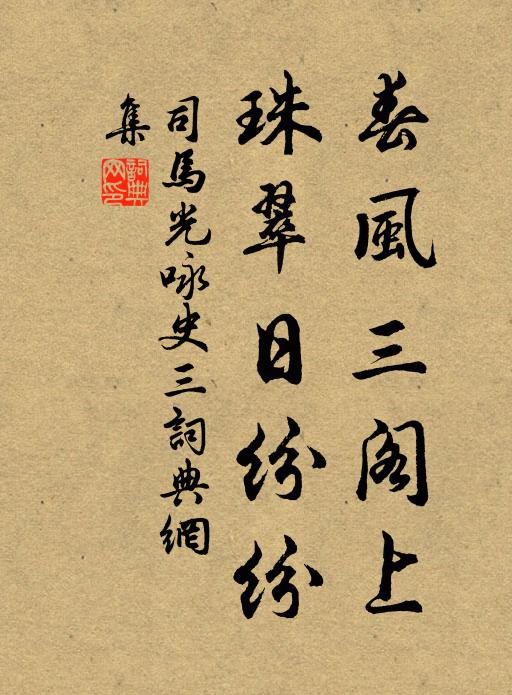 春風三阁上
珠翠日紛紛
司馬光咏史三詞典網
集
詞典
网印